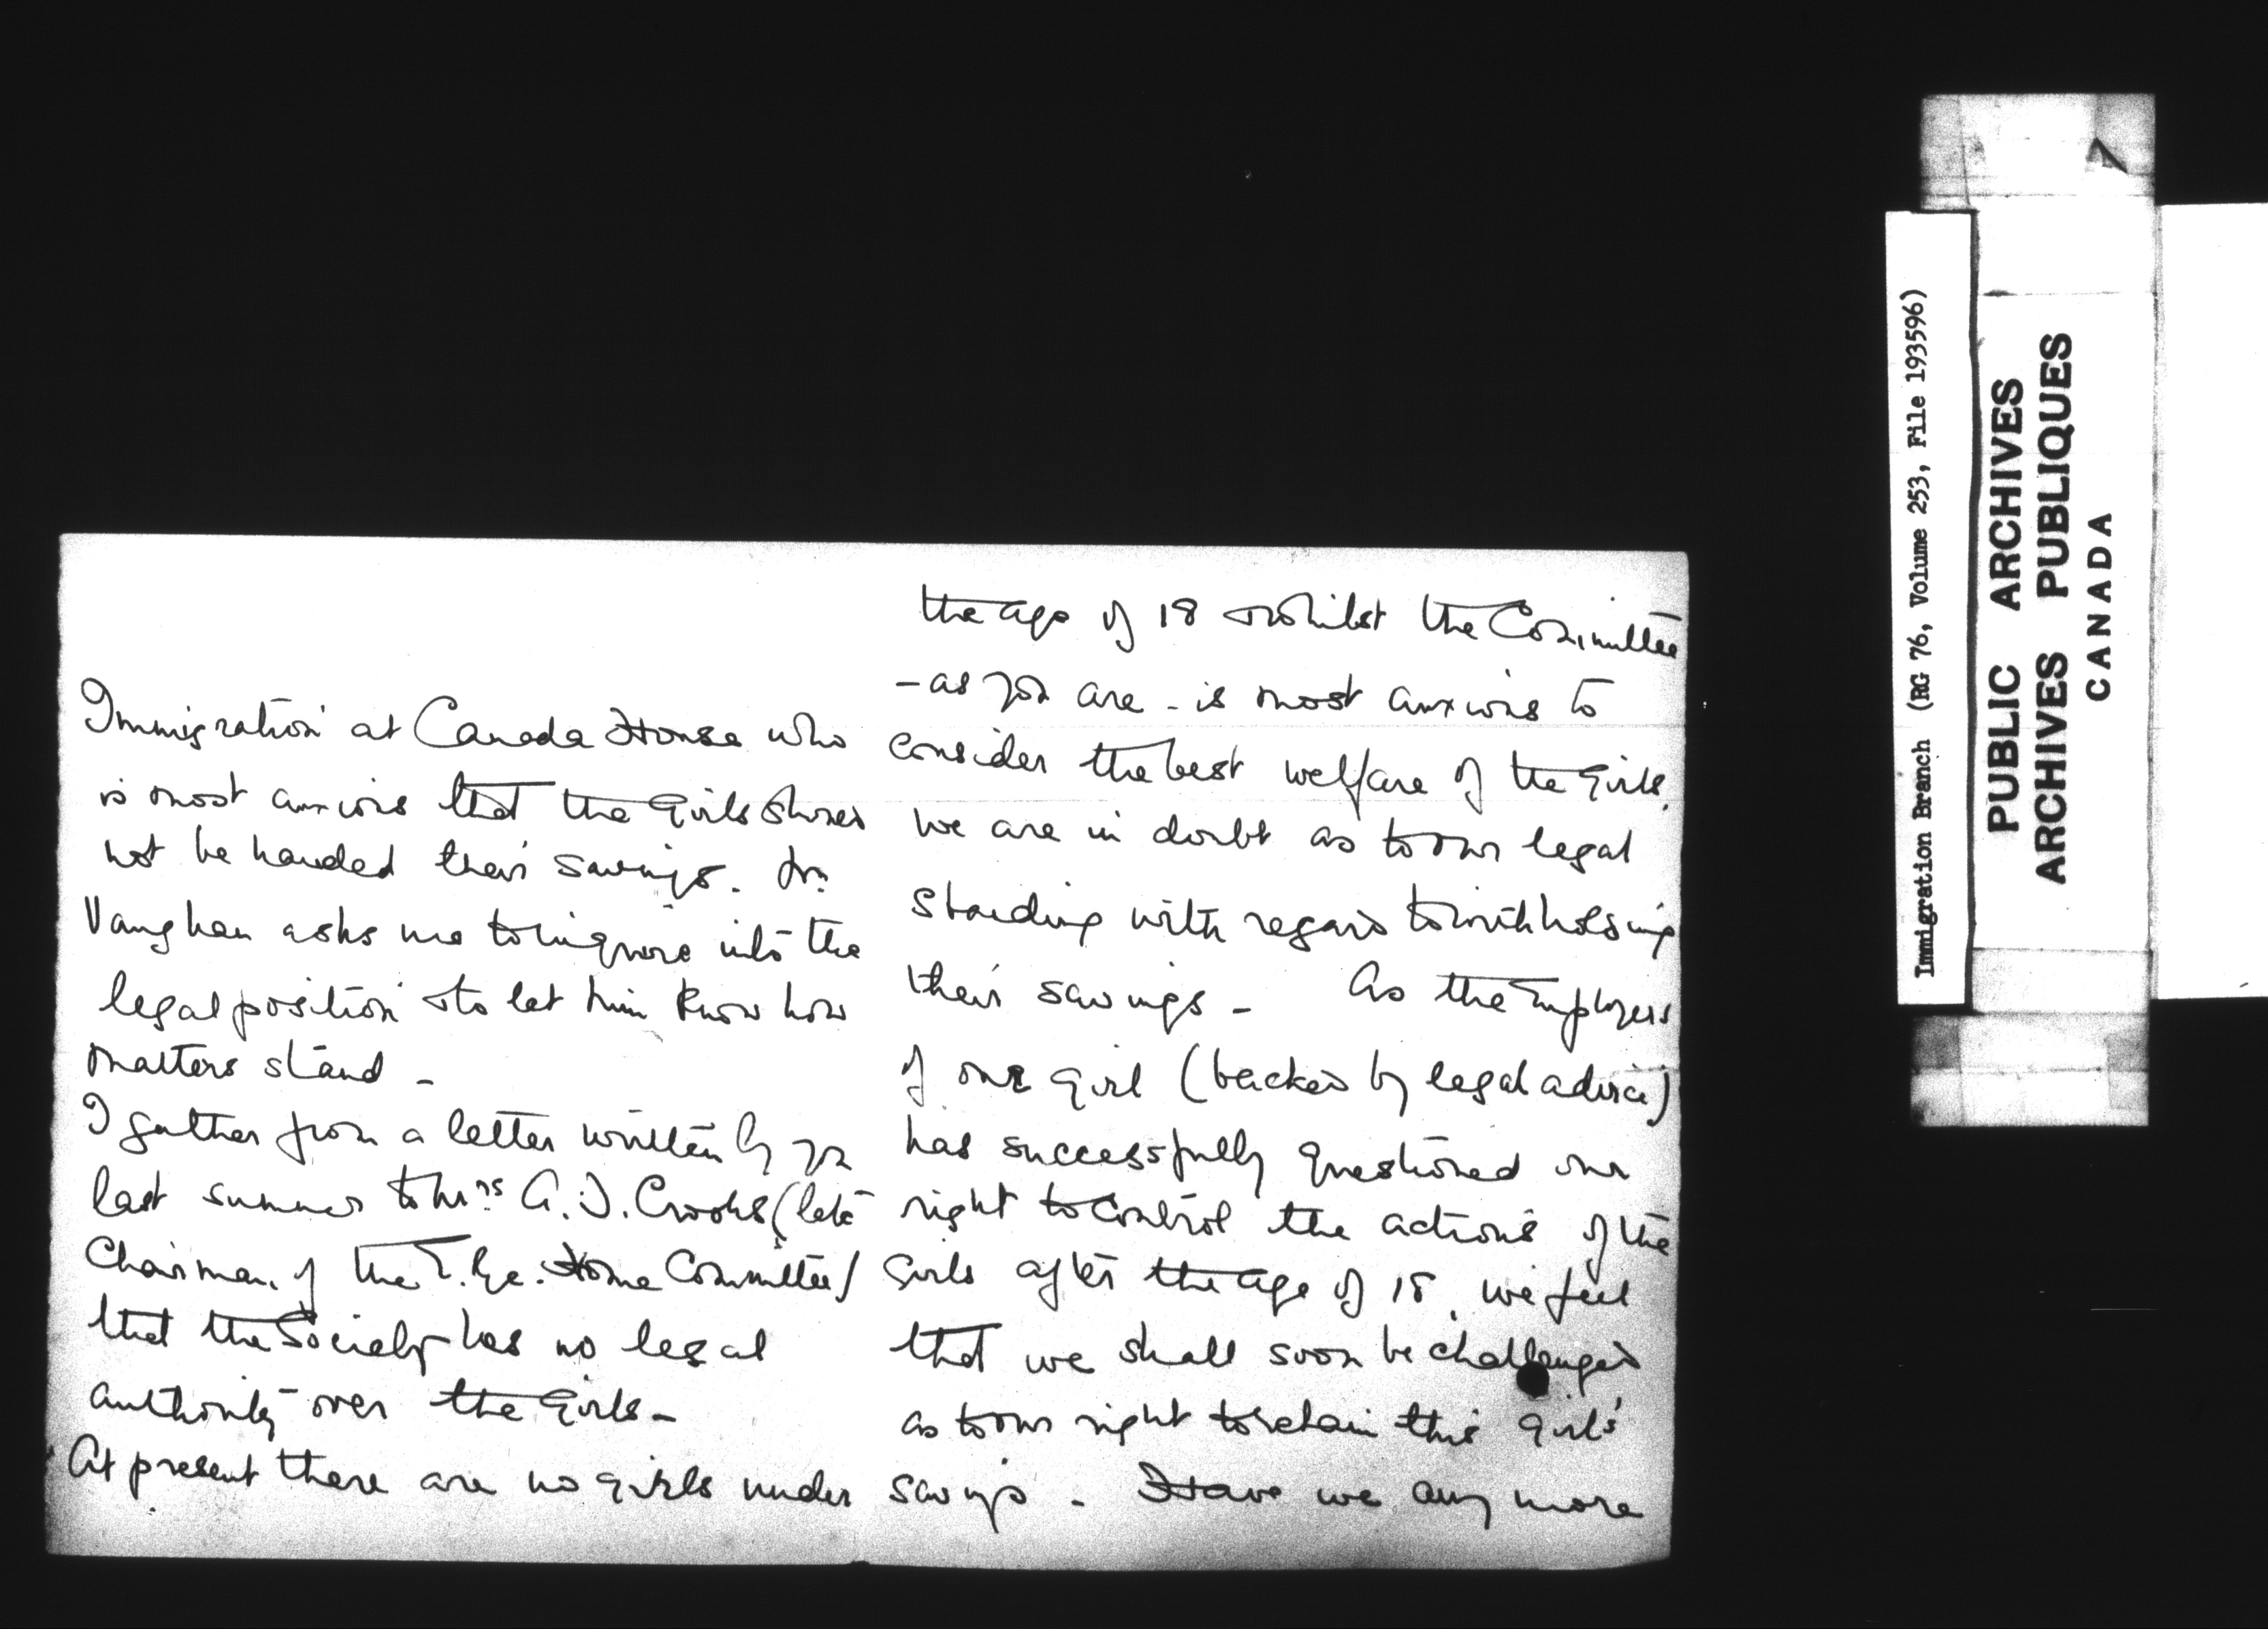 Immigration at Canada House who
is most anxious that the Girls should
not be handed their savings. Mr.
Vaughan asks me to inquire into the
legal position & to let him know how
matters stand –
I gather from a letter written by you
last summer to Mrs A. J. Crooks (late
Chairman of the Home Committee)
that the Society has no legal
authority over the Girls –
At present there are no girls under
the age of 18 & whilst the Committee
– as you are – is most anxious to
consider the best welfare of the Girls,
we are in doubt as to our legal
standing with regard to withholding
their savings – As the Employers
of one girl (backed by legal advice)
has successfully questioned our
right to control the actions of the
Girls after the age of 18, we feel
that we shall soon be challenged
as to our right to retain this girl's
savings – Have we any more
Immigration Branch (RG 76, Volume 253, File 193596)
PUBLIC ARCHIVES
ARCHIVES PUBLIQUES
CANADA